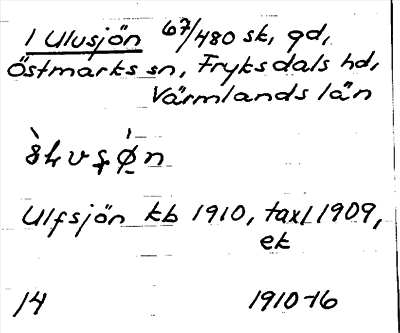 1 Ulusjön 67/480 sk, gd,
Östmarks sn, Fryksdals hd,
Värmlands län
Ulfsjön kb 1910, taxl 1909,
ek
14 1910-16